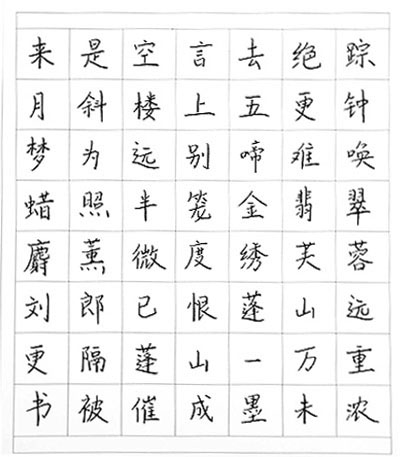 来是空言去绝踪
月斜楼上五更钟
梦为远别啼难唤
蜡照半笼金翡翠
麝薰微度绣芙蓉
刘郎已恨蓬山远
更隔蓬山一万重
书被催成墨未浓